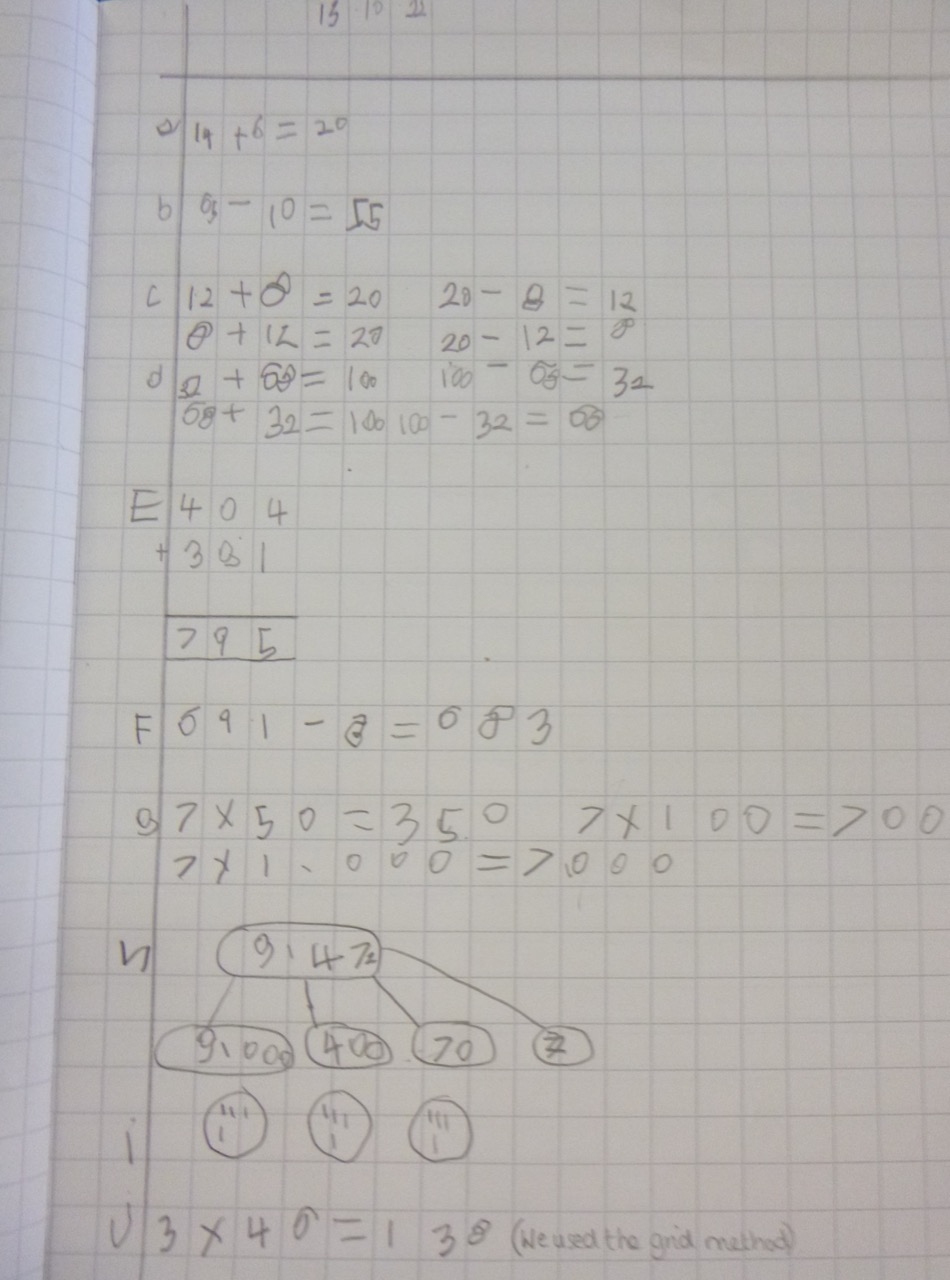 15 10
a 14 + 6 = 20
b - 10 = 55
c 12 + 8 = 20 20 - 8 = 12
8 + 12 = 20 20 - 12 = 8
d 32 + 68 = 100 100 - 68 = 32
68 + 32 = 100 100 - 32 = 68
E 4 0 4
+ 3 9 1
7 9 5
F 6 9 1 - 8 = 6 8 3
g 7 x 5 0 = 3 5 0 7 x 1 0 0 = 7 0 0
7 x 1,0 0 0 = 7,0 0 0
h 9,472
9,000 400 70 2
i
j 3 x 4 6 = 1 3 8 (We used the grid method)